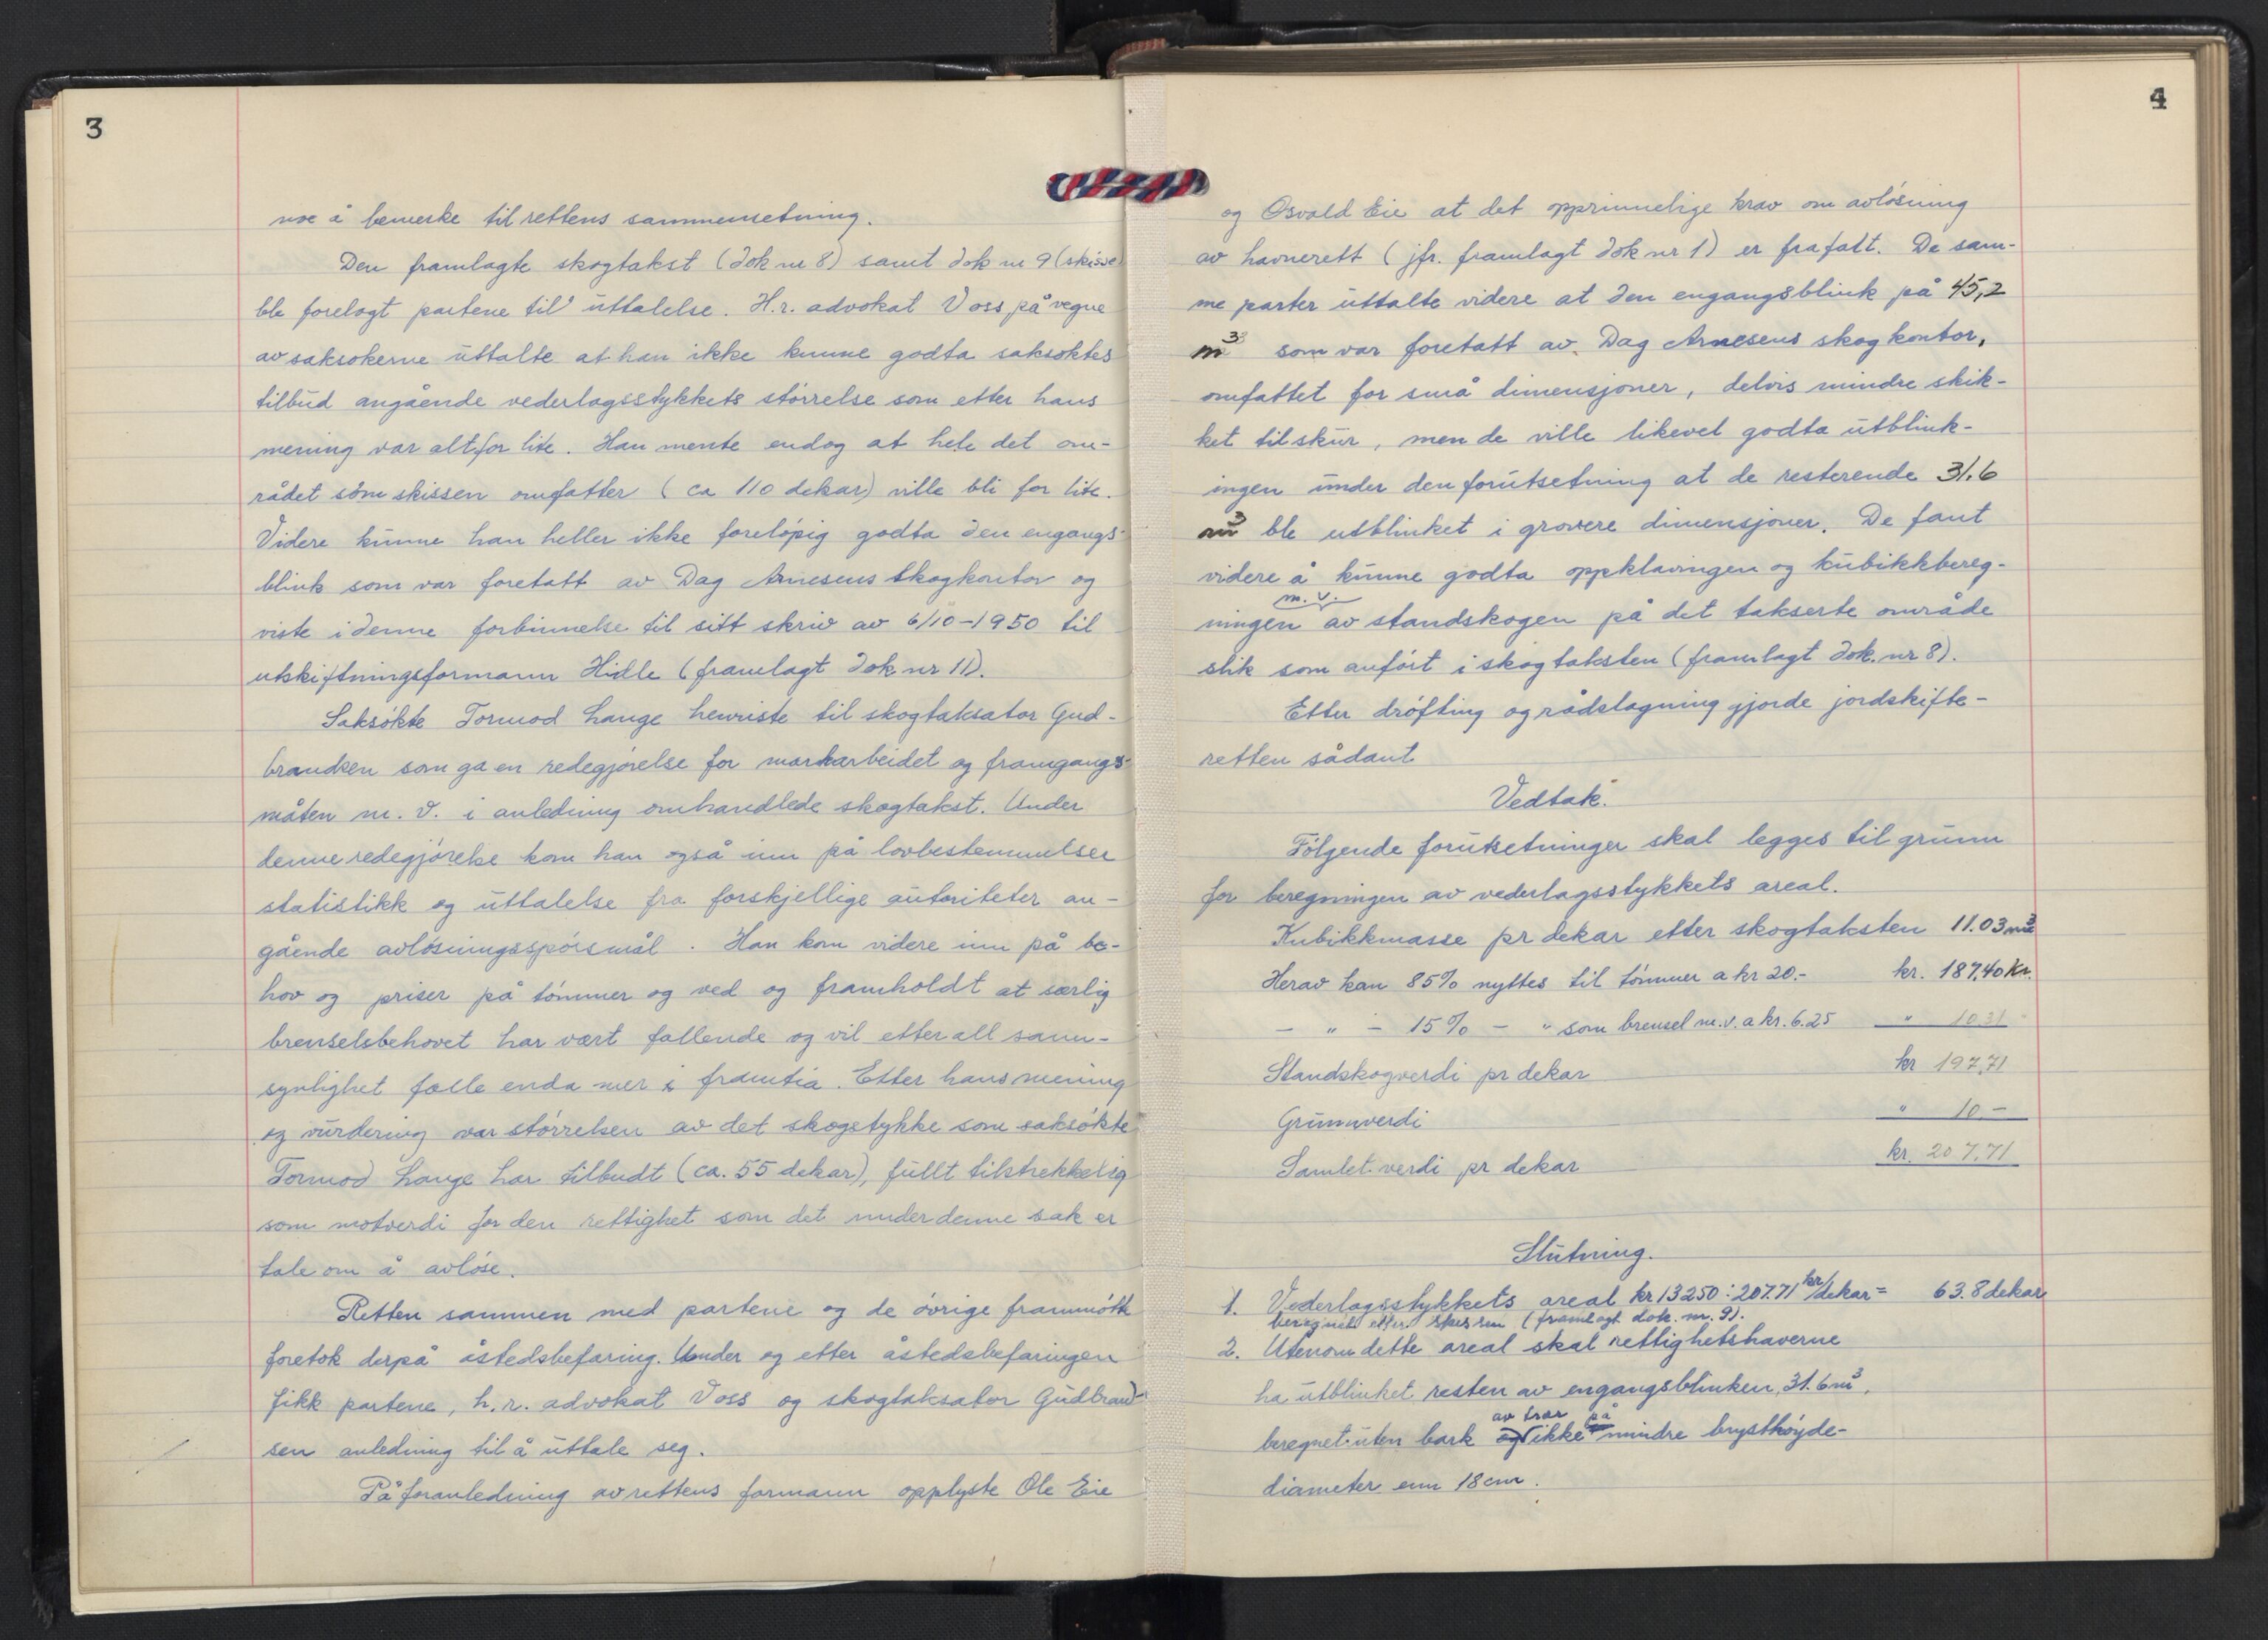 3
noe å bemerke til rettens sammensetning.
Den framlagte skogtakst (dok nr 8) samt dok nr 9 (skisse)
ble forelagt partene til uttalelse. H.r. advokat Voss på vegne
av saksøkerne uttalte at han ikke kunne godta saksøktes
tilbud angående vederlagsstykkets størrelse som etter hans
mening var altfor lite. Han mente endog at hele det om-
rådet som skissen omfatter (ca 110 dekar) ville bli for lite.
Videre kunne han heller ikke foreløpig godta den engangs-
blink som var foretatt av Dag Arnesens skogkontor og
viste i denne forbinnelse til sitt skriv av 6/10-1950 til
utskiftningsformann Hidle (framlagt dok nr 11).
Saksøkte Tormod Lauge henviste til skogtaksator Gud-
brandsen som ga en redegjørelse for markarbeidet og framgangs-
måten m. v. i anledning omhandlede skogtakst. Under
denne redegjørelse kom han også inn på lovbestemmelser
statistikk og uttalelse fra forskjellige autoriteter an-
gående avløsningsspørsmål. Han kom videre inn på be-
hov og priser på tømmer og ved og framholdt at særlig
brenselsbehovet har vært fallende og vil etter all sann-
synlighet falle enda mer i framtia. Etter hans mening
og vurdering var størrelsen av det skogstykke som saksøkte
Tormod Lauge har tilbudt (ca. 55 dekar), fullt tilstrekkelig
som motverdi for den rettighet som det under denne sak er
tale om å avløse.
Retten sammen med partene og de øvrige frammøtte
foretok derpå åstedsbefaring. Under og etter åstedsbefaringen
fikk partene, h.r. advokat Voss og skogtaksator Gudbrand-
sen anledning til å uttale seg.
På foranledning av rettens formann opplyste Ole Eie
4
og Osvald Eie at det opprinnelige krav om avløsning
av havnerett (jfr. framlagt dok nr 1) er frafalt. De sam-
me parter uttalte videre at den engangsblink på 45,2
m³ som var foretatt av Dag Arnesens skogkontor,
omfattet for små dimensjoner, delvis mindre skik-
ket til skur, men de ville likevel godta utblink-
ingen under den forutsetning at de resterende 31.6
m³ ble utblinket i grovere dimensjoner. De fant
videre å kunne godta oppklavingen og kubikkbereg-
m. v.
ningen av standskogen på det takserte område
slik som anført i skogtaksten (framlagt dok. nr 8).
Etter drøfting og rådslagning gjorde jordskifte-
retten sådant
Vedtak.
Følgende forutsetninger skal legges til grunn
for beregningen av vederlagsstykkets areal.
Kubikkmasse pr dekar etter skogtaksten 11.03 m³
Herav kan 85% nyttes til tømmer a kr 20.- kr. 187,40 kr.
- " - 15% - " som brensel m.v. a kr. 6.25 " 10 31
Standskogverdi pr dekar kr 197,71
Grunnverdi " 10,-
Samlet verdi pr dekar kr. 207,71
Slutning.
1. Vederlagsstykkets areal kr 13250 : 207.71 kr/dekar = 63.8 dekar
beregnet etter skissen (framlagt dok. nr. 9).
2. Utenom dette areal skal rettighetshaverne
ha utblinket resten av engangsblinken, 31.6 m³,
av trær på
beregnet uten bark og ikke mindre brysthøyde-
diameter enn 18 cm.